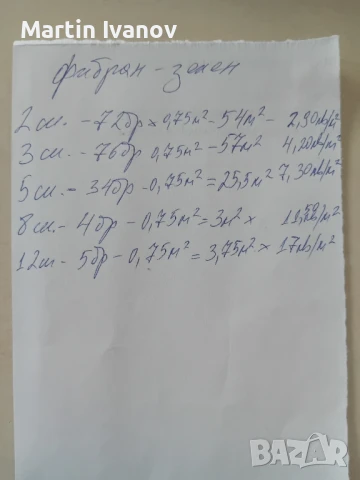 Martin Ivanov
фибран - зелен
2 см. - 72бр x 0,75м² - 54м² - 2,90лв/м²
3 см. - 76бр 0,75м² - 57м² 4,20лв/м²
5 см. - 34бр - 0,75м² = 25,5м² 7,30лв/м²
8 см - 4бр - 0,75м² = 3м² x 11,50лв/м²
12см - 5бр - 0,75м² = 3,75м² x 17лв/м²
BAZAR